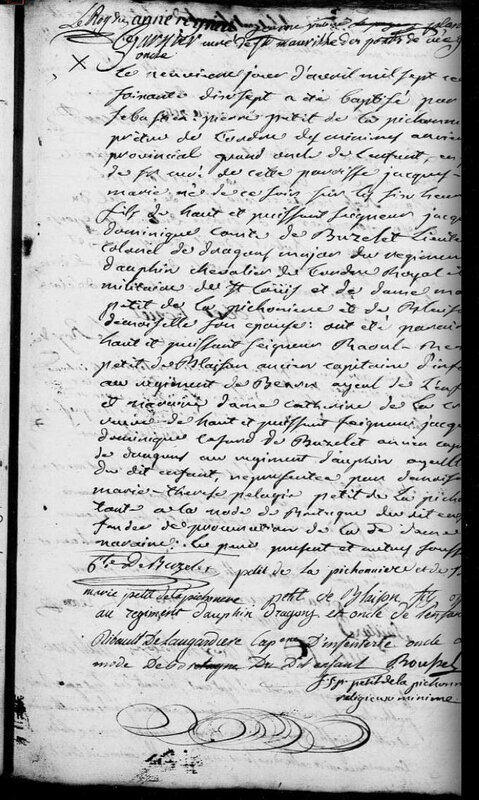 Le Roy du anne
curé de St mauville
onde
Le neuvieme jour d'avril mil sept ce
soixante dix sept a été baptisé par
sebastien pierre petit de la pichonn
prêtre de L'ordre des minimes ancien
provincial grand oncle de L'enfant, en
de Mr curé de cette paroisse jacques
marie né de ce soir sur les six heur
fils de haut et puissant seigneur jacq
dominique comte de Buzelet Lieute
colonel de dragons major du regimen
dauphin chevalier de L'ordre Royal e
militaire de St Louis et de dame ma
petit de la pichoniere et de Blaiso
demoiselle son epouse: ont été parain
haut et puissant seigneur Raoul
petit de Blaison ancien capitaine d'inf
au regiment de ayeul de L'enf
et maraine dame catherine de La
veuve de haut et puissant seigneur jacq
dominique de Buzelet ancien cap
de dragons au regiment dauphin ayeulle
du dit enfant, representée par demois
marie-therese pelagie petit de la picho
tante a la mode de Bretagne du dit en
fondée de procuration de la de dame
maraine. Le pere present et autres souss
Cte de Buzelet petit de la pichonniere et de B
marie petit de la pichonniere petit de Blaison fils
au regiment dauphin dragons et oncle de l'enfan
Ribault De Laugardiere capne D'infanterie oncle a
mode de bretagne Du Dit enfant Boussel
f. S. p. petit de la pichonn
religieux minime